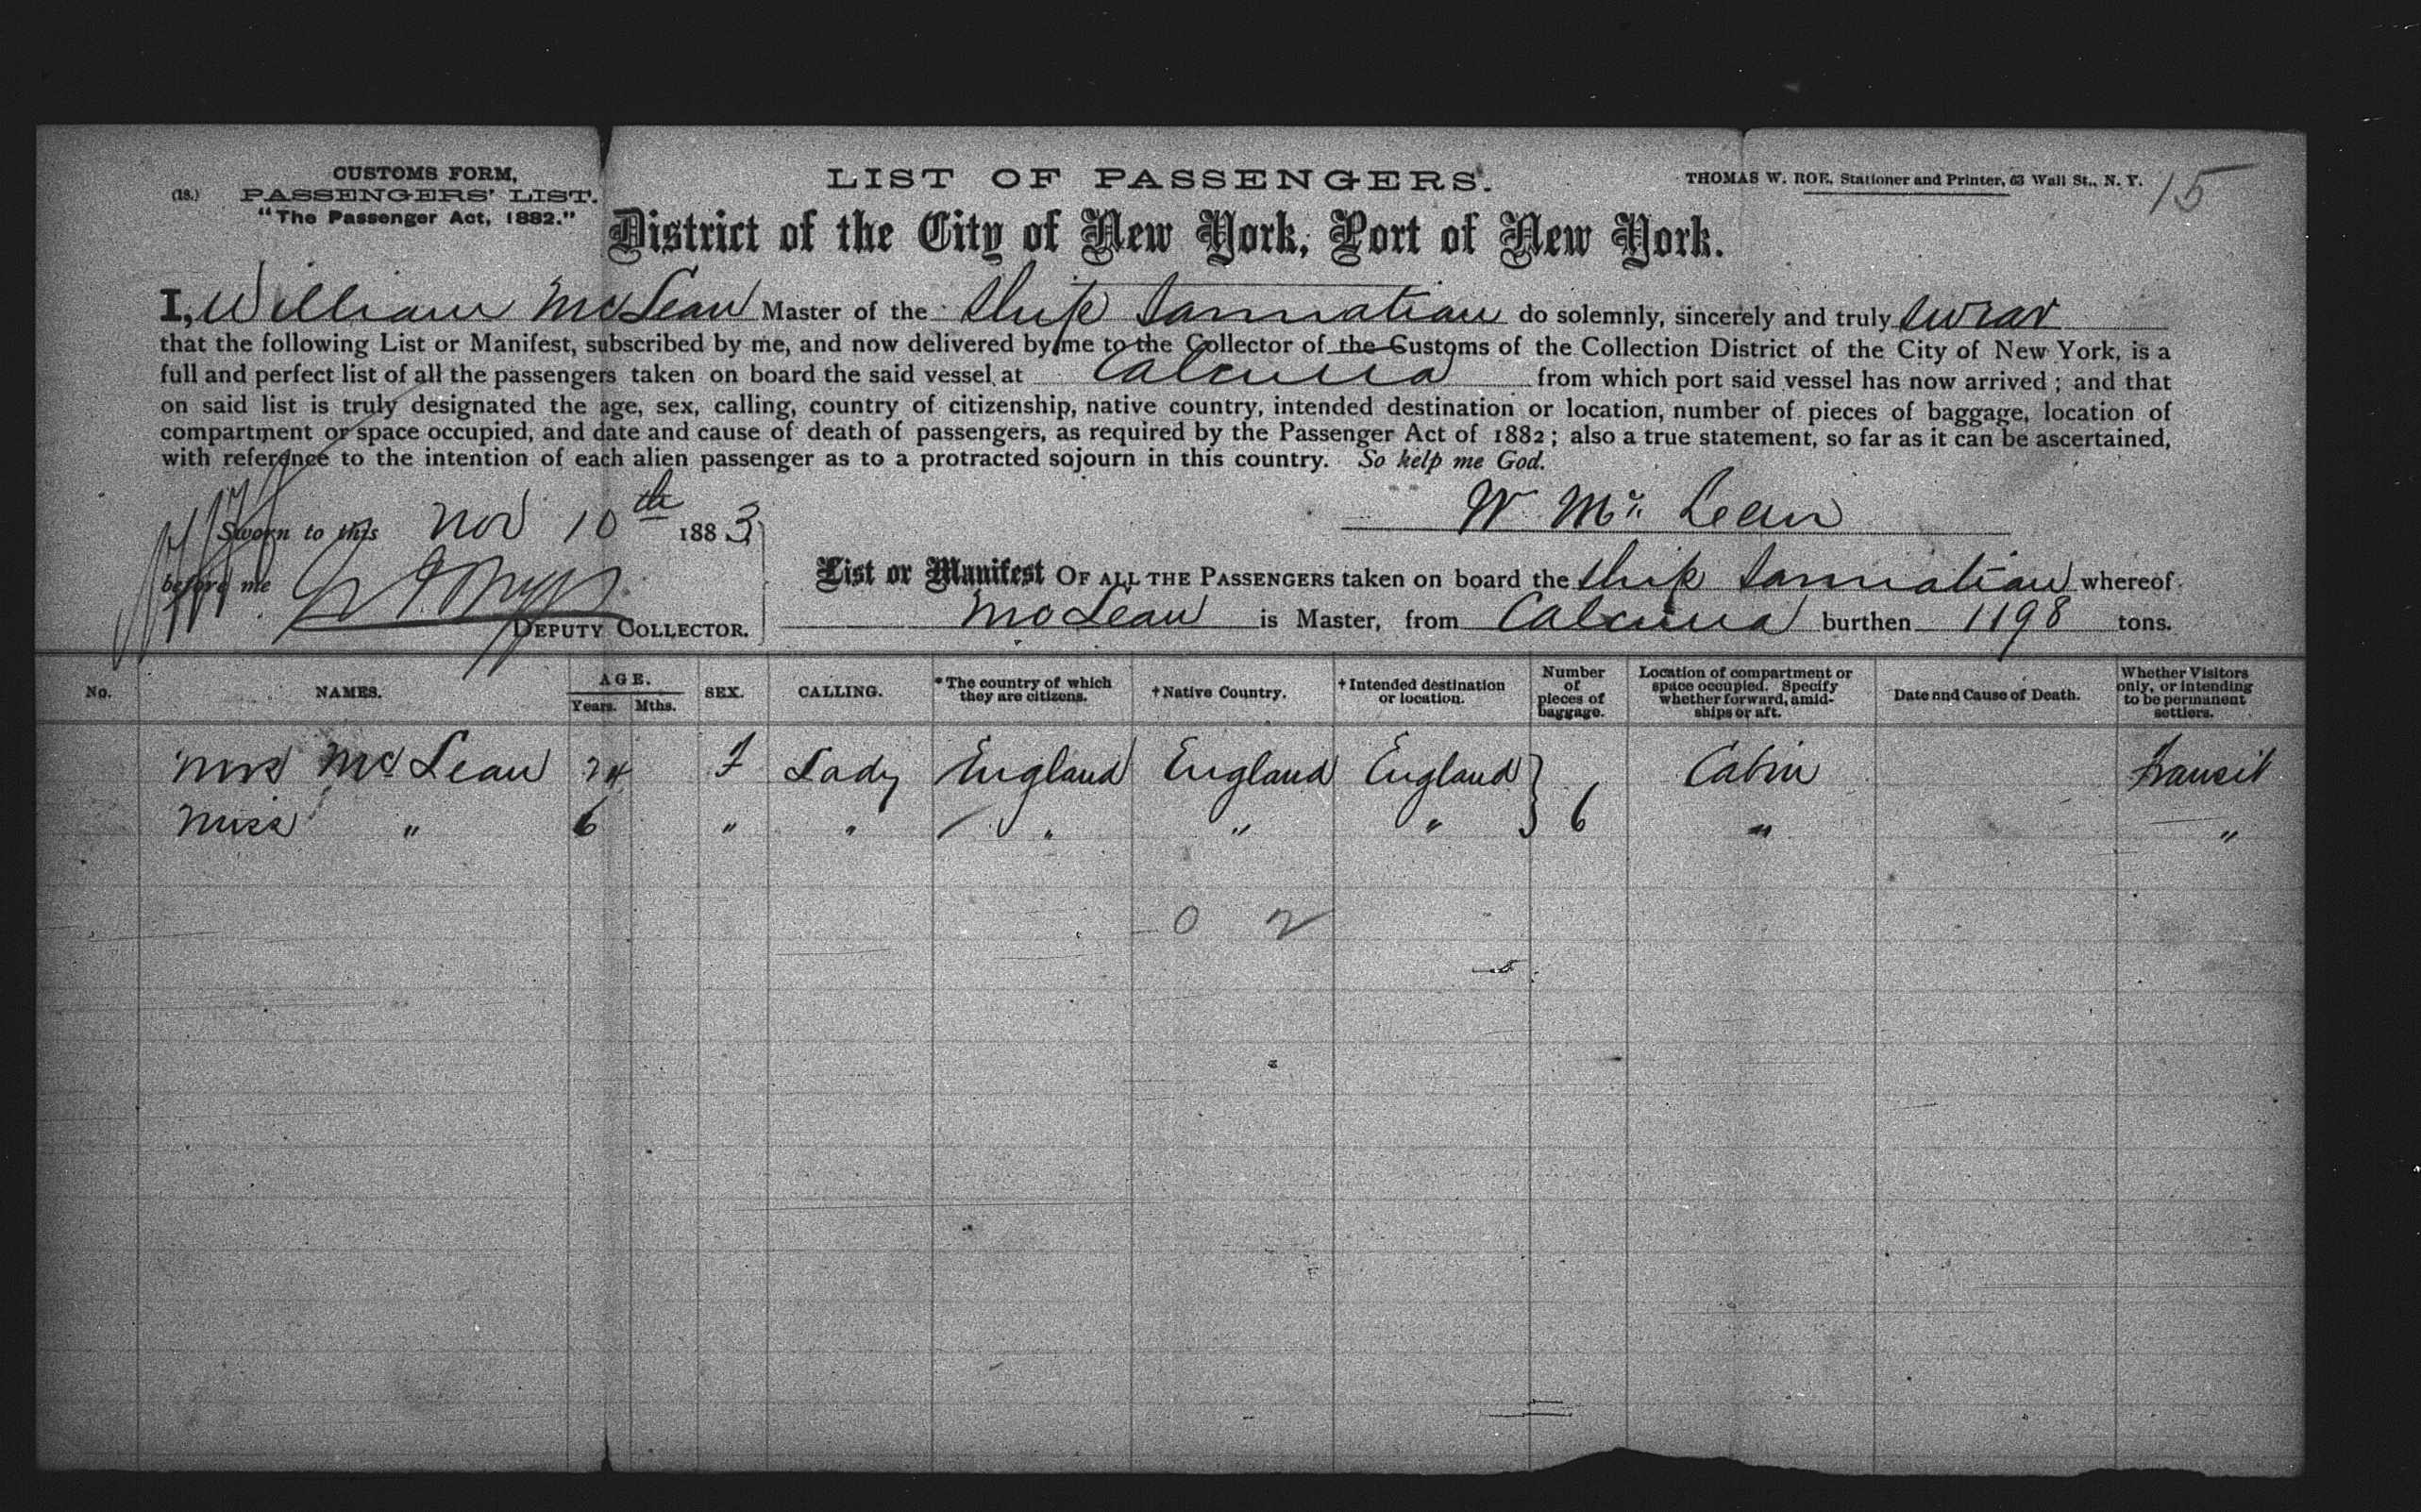 CUSTOMS FORM,
(18.) PASSENGERS' LIST.
"The Passenger Act, 1882."
LIST OF PASSENGERS.
THOMAS W. ROE, Stationer and Printer, 63 Wall St., N. Y.
15
District of the City of New York, Port of New York.
I, William McLean Master of the Ship Sarmatian do solemnly, sincerely and truly swear
that the following List or Manifest, subscribed by me, and now delivered by me to the Collector of the Customs of the Collection District of the City of New York, is a
full and perfect list of all the passengers taken on board the said vessel at Calcutta from which port said vessel has now arrived; and that
on said list is truly designated the age, sex, calling, country of citizenship, native country, intended destination or location, number of pieces of baggage, location of
compartment or space occupied, and date and cause of death of passengers, as required by the Passenger Act of 1882; also a true statement, so far as it can be ascertained,
with reference to the intention of each alien passenger as to a protracted sojourn in this country. So help me God.
W. Mc Lean
Sworn to this Nov 10th 1883
before me
DEPUTY COLLECTOR.
List or Manifest OF ALL THE PASSENGERS taken on board the Ship Sarmatian whereof
McLean is Master, from Calcutta burthen 1198 tons.
No. NAMES. AGE. Years. Mths. SEX. CALLING. *The country of which they are citizens. †Native Country. †Intended destination or location. Number of pieces of baggage. Location of compartment or space occupied. Specify whether forward, amidships or aft. Date and Cause of Death. Whether Visitors only, or intending to be permanent settlers.
Mrs McLean 24 F Lady England England England } 6 Cabin Transit
Miss " 6 " " " " " " "
0 2